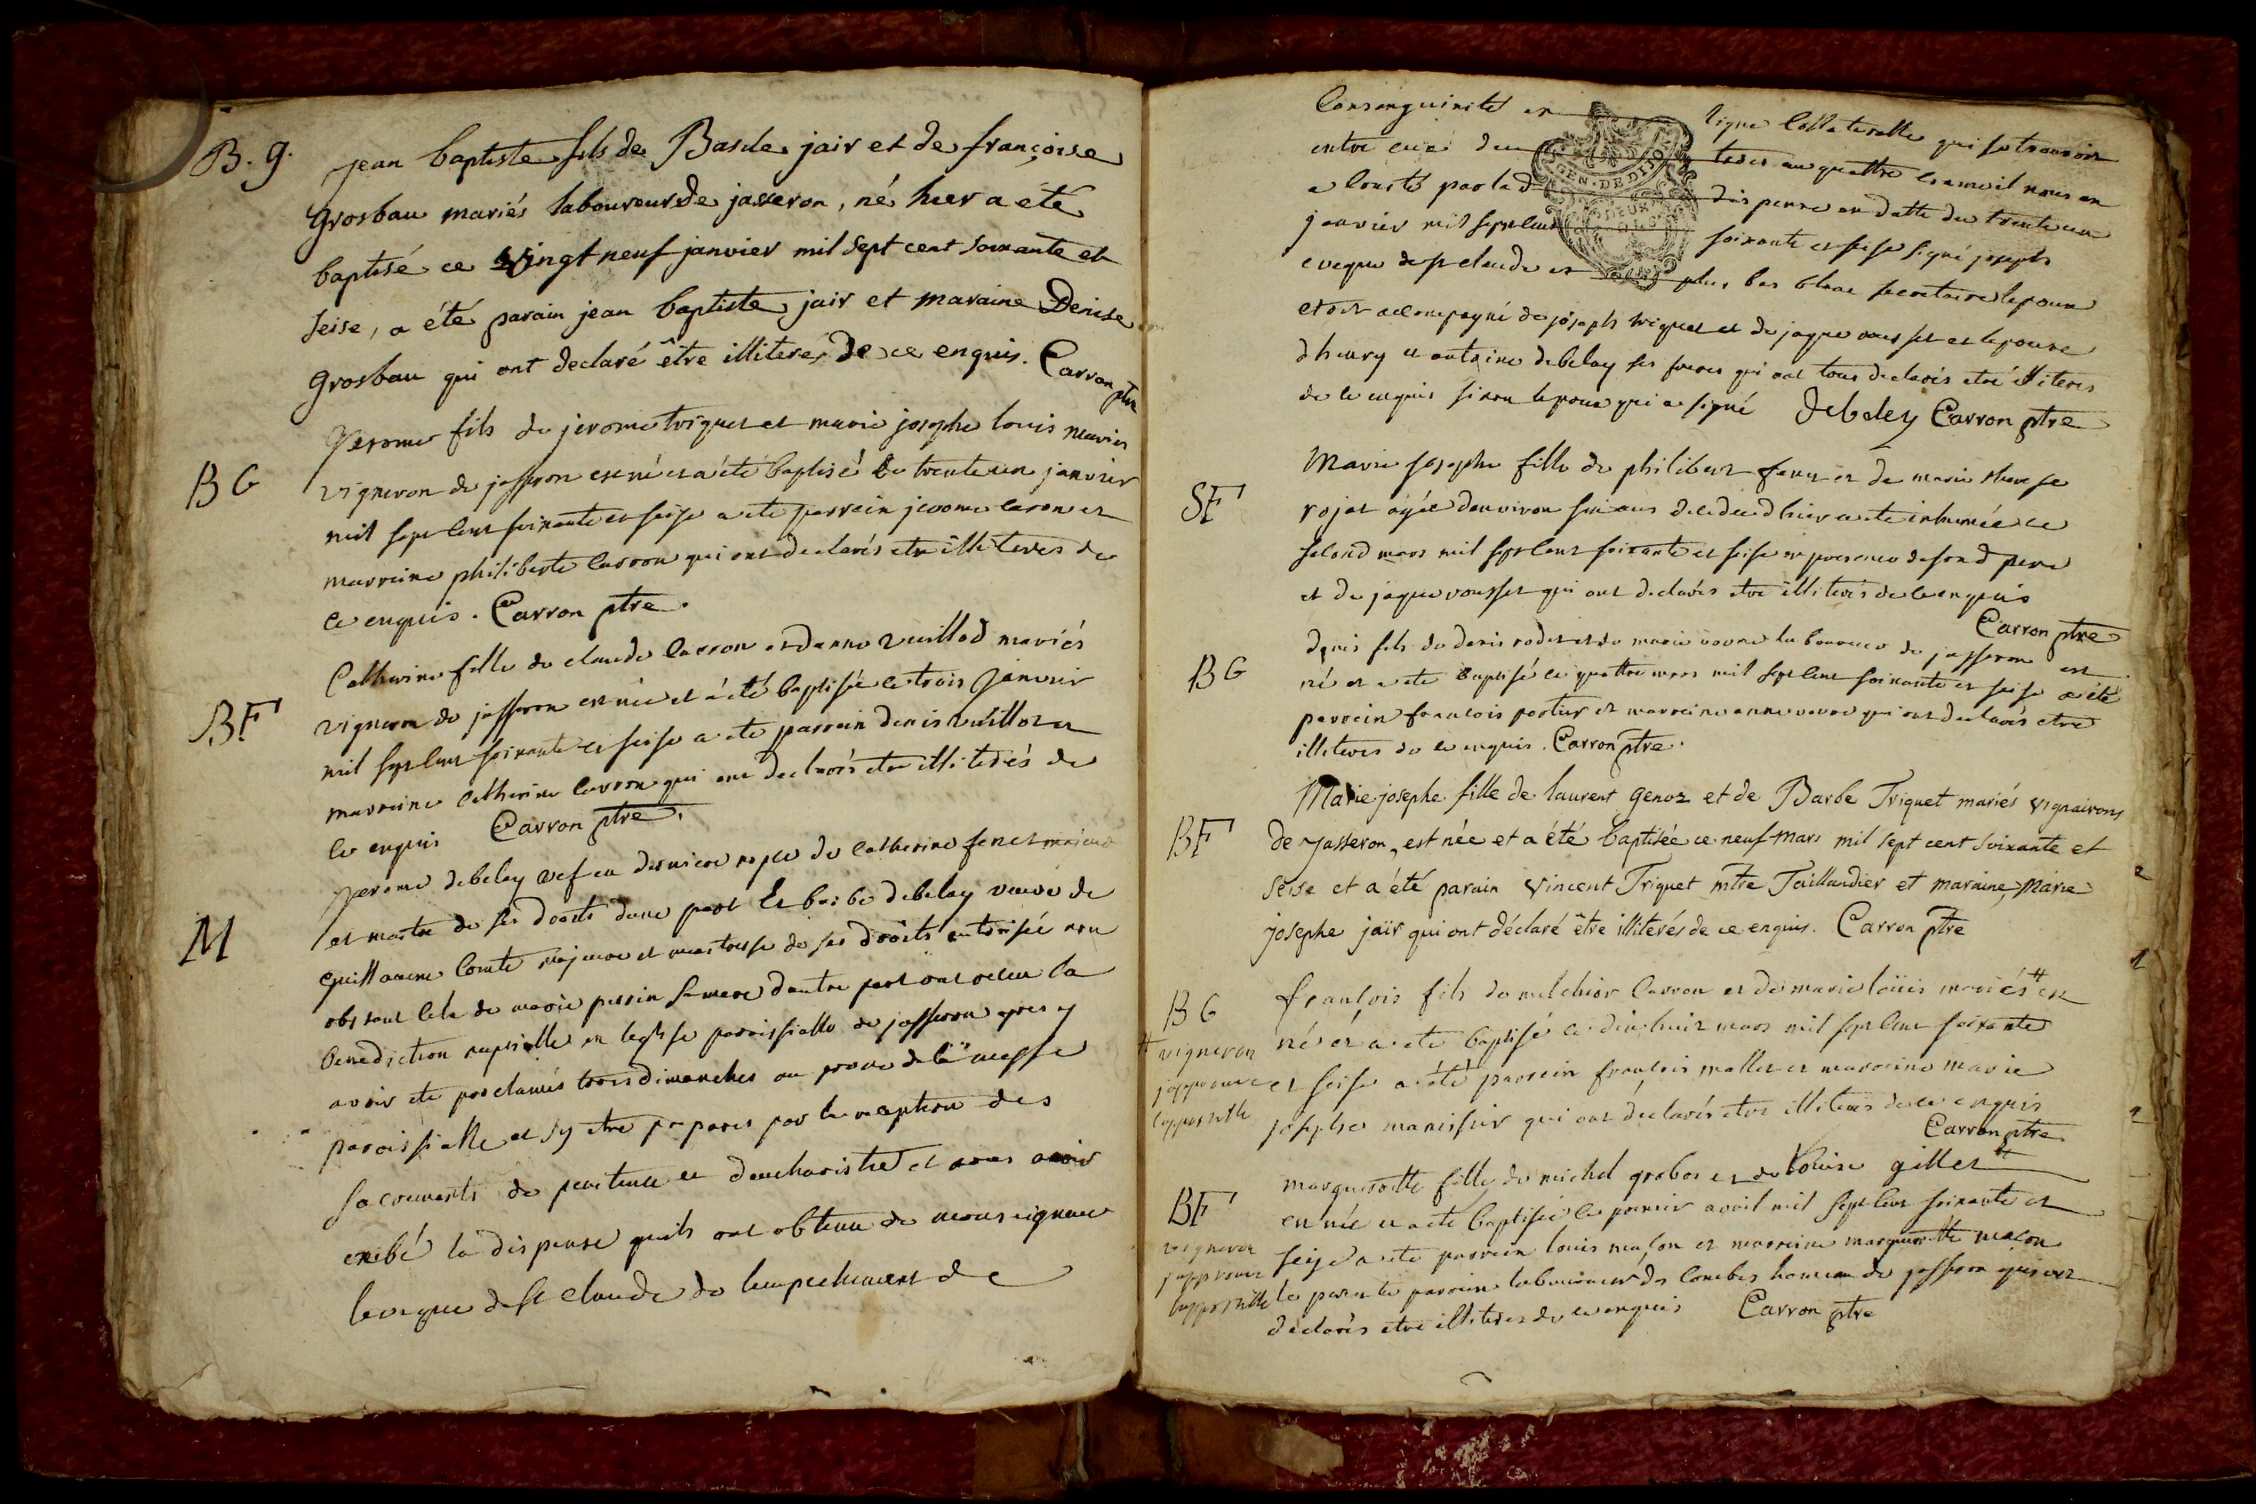 B. g.
jean baptiste fils de Basile jair et de françoise
grosbau mariés laboureurs de jasseron, né hier a été
baptisé ce vingt neuf janvier mil sept cent soixante et
seise, a été parain jean baptiste jair et maraine Denise
Grosbau qui ont declaré être illiterés de ce enquis. Carron ptre
BG
Jerome fils de jerome triquet et marie josephe louis mariés
vigneron de jasseron est né et a été baptisé le trente un janvier
mil sept cent soixante et seise a ete parrein jerome caron et
marreine philiberte carron qui ont declarés etre illiteres de
ce enquis. Carron ptre.
BF
Catherine fille de claude carron et danne vuillod mariés
vigneron de jasseron est née et a été baptisée le trois janvier
mil sept cent soixante et seise a ete parrain denis vuillot et
marreine catherine carron qui ont declarés etre illiterés de
ce enquis Carron ptre.
M
Jerome debeley vef en derniere nopce de catherine feret majeur
et maitre de ses droits dune part Et barbe debeley veuve de
guillaume comte majeure et maitresse de ses droits autorisée non
obstant cela de marie perrin sa mere dautre part ont recu la
benediction nuptialle en leglise paroissialle de jasseron apres y
avoir ete proclamés trois dimanches au prone de la messe
paroissialle et sy etre prepares par la reception des
sacrements de penitence et deucharistie et nous avoir
exibé la dispense quils ont obtenu de monseigneur
leveque de st claude de lempechement de
consanguinité en ligne collateralle qui se trouvoit
entre eux du au quattre comme il nous en
a consté par lad dispense en datte du trente un
janvier mil sept cent soixante et seise signé joseph
eveque de st claude et plus bas secretaire lepoux
etoit accompagné de joseph triquet et de jaque vousset et lepouse
dheury et antoine debeley ses freres qui ont tous declarés etre illiteres
de ce enquis sinon lepoux qui a signé Debeley Carron ptre
SF
Marie josephe fille de philibert feret et de marie therese
rojat agée denviron six ans decedée dhier a ete inhumée ce
second mars mil sept cent soixante et seise en presence de son d pere
et de jaque vousset qui ont declarés etre illiterés de ce enquis
Carron ptre
BG
denis fils de denis rodet et de marie laboureur de jasseron est
né et a ete baptisé ce quattre mars mil sept cent soixante et seise a été
parrein francois portier et marreine anne qui ont declarés etre
illiteres de ce enquis. Carron ptre.
BF
Marie josephe fille de laurent genoz et de Barbe Triquet mariés vignairons
de Jasseron, est née et a été baptisée ce neuf mars mil sept cent soixante et
seise et a été parain vincent Triquet mtre Taillandier et maraine, Marie
josephe jaïr qui ont déclaré être illiterés de ce enquis. Carron Ptre
BG
# vigneron
japprouve
lappostille
françois fils de melchior carron et de marie loüis mariés # est
né et a ete baptisé ce dix huit mars mil sept cent soixante
et seise a été parrein françois mallet et marreine marie
josephe manissier qui ont declarés etre illiteres de ce enquis
Carron ptre
BF
vigneron
japprouve
lappostille
margueritte fille de michel grobos et de louise gillet #
est née et a ete baptisée le premier avril mil sept cent soixante et
seise a ete parrein louis maçon et marreine margueritte maçon
le parrein laboureur des combes hameau de jasseron qui ont
declarés etre illiteres de ce enquis Carron ptre